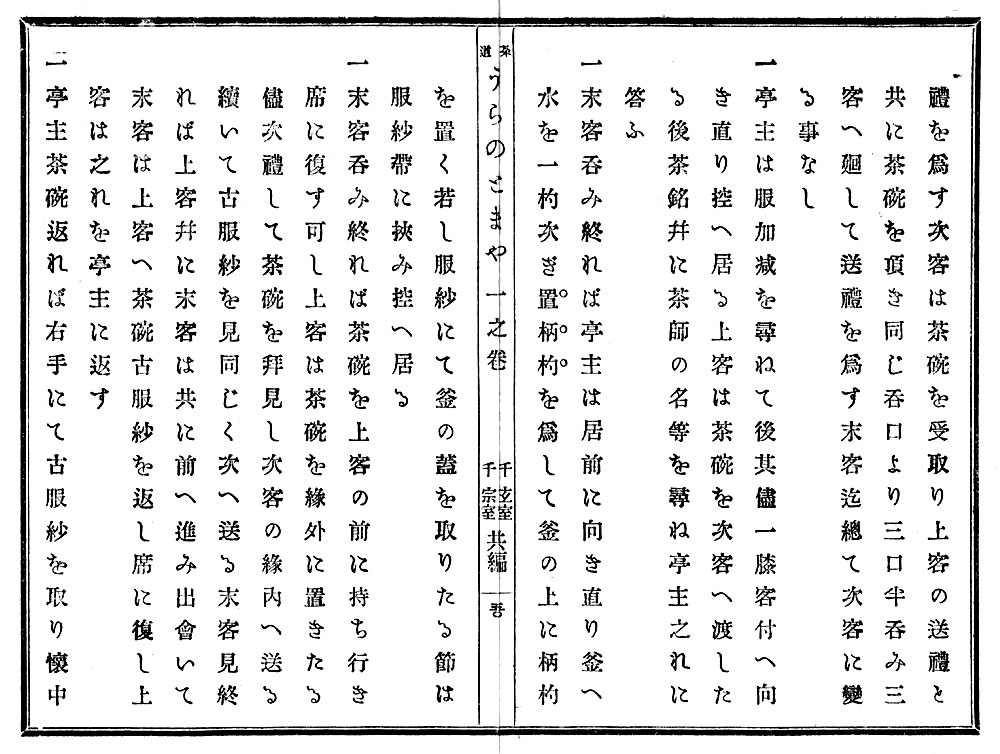 禮を爲す次客は茶碗を受取り上客の送禮と
共に茶碗を頂き同じ呑口より三口半呑み三
客へ廻して送禮を爲す末客迄總て次客に變
る事なし
一亭主は服加减を尋ねて後其儘一膝客付へ向
き直り控へ居る上客は茶碗を次客へ渡した
る後茶銘幷に茶師の名等を尋ね亭主之れに
答ふ
一末客呑み終れば亭主は居前に向き直り釜へ
水を一杓次ぎ置柄杓を爲して釜の上に柄杓
茶道うらのとまや一之卷
千玄室
千宗室
共編
を置く若し服紗にて釜の蓋を取りたる節は
服紗帶に挾み控へ居る
一末客呑み終れば茶碗を上客の前に持ち行き
席に復す可し上客は茶碗を緣外に置きたる
儘次禮して茶碗を拜見し次客の緣内へ送る
續いて古服紗を見同じく次へ送る末客見終
れば上客幷に末客は共に前へ進み出會いて
末客は上客へ茶碗古服紗を返し席に復し上
客は之れを亭主に返す
一亭主茶碗返れば右手にて古服紗を取り懷中